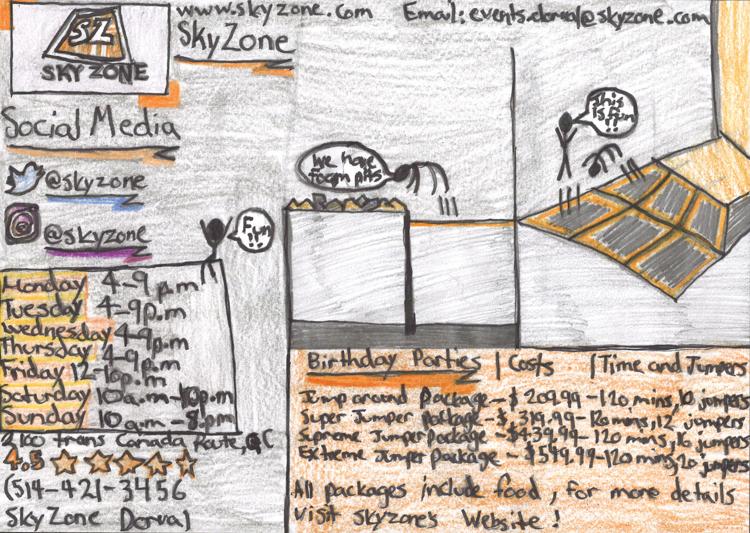 SZ
SKY ZONE
www.skyzone.com
Email: events.dorval@skyzone.com
SkyZone
Social Media
@skyzone
@skyzone
Fun
!!
We have
foam pits
This
is fun
!!
Monday 4-9 p.m
Tuesday 4-9p.m
Wednesday 4-9p.m
Thursday 4-9p.m
Friday 12-10p.m
Saturday 10a.m-10p.m
Sunday 10a.m-8p.m
2100 trans Canada Route, QC
4.5
(514-421-3456
SkyZone Dorval
Birthday Parties | Costs | Time and Jumpers
Jump around package - $209.99 - 120 mins, 10 jumpers
Super Jumper package - $319.99 - 120 mins, 12 jumpers
Supreme Jumper Package - $439.99 - 120 mins, 16 jumpers
Extreme Jumper Package - $549.99 - 120 mins, 20 jumpers
All packages include food, for more details
visit skyzone's Website!